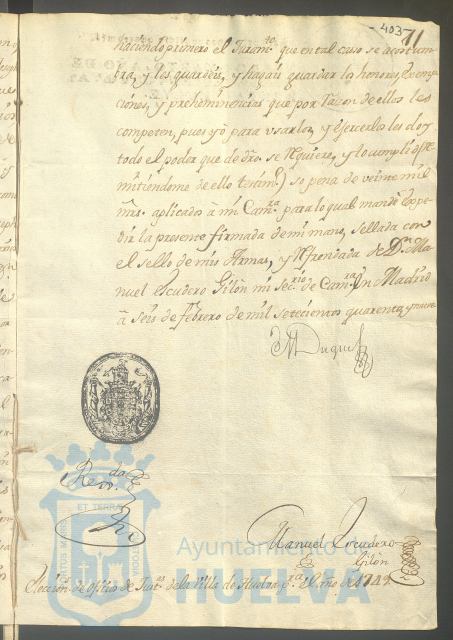 -403- 71
haciendo primero el Juram.to que en tal caso se acostum
bra, y les guardeis, y hagais guardar los honores, exemp
ciones, y preheminencias que por razon de ellos les
competen, pues yo para usarlos y ejercerlos les doy
todo el poder que de dro. se requiere, y lo cumplireis
mitiendome de ello teram.o so pena de veinte mil
mrs. aplicados à mi Cam.ra para lo qual mandè expe
dir la presente firmada de mi mano, sellada con
el sello de mis Armas, y refrendada de D.n Ma
nuel Escudero Gilòn mi Sec.rio de Cam.ra En Madrid
à seis de febrero de mil setecientos quarenta y nueve
El Duque
Manuel Escudero
Gilòn
Elección de Oficios de Just.as de la Villa de Huelva p.a el año de 1749
Ayuntamiento de
HUELVA